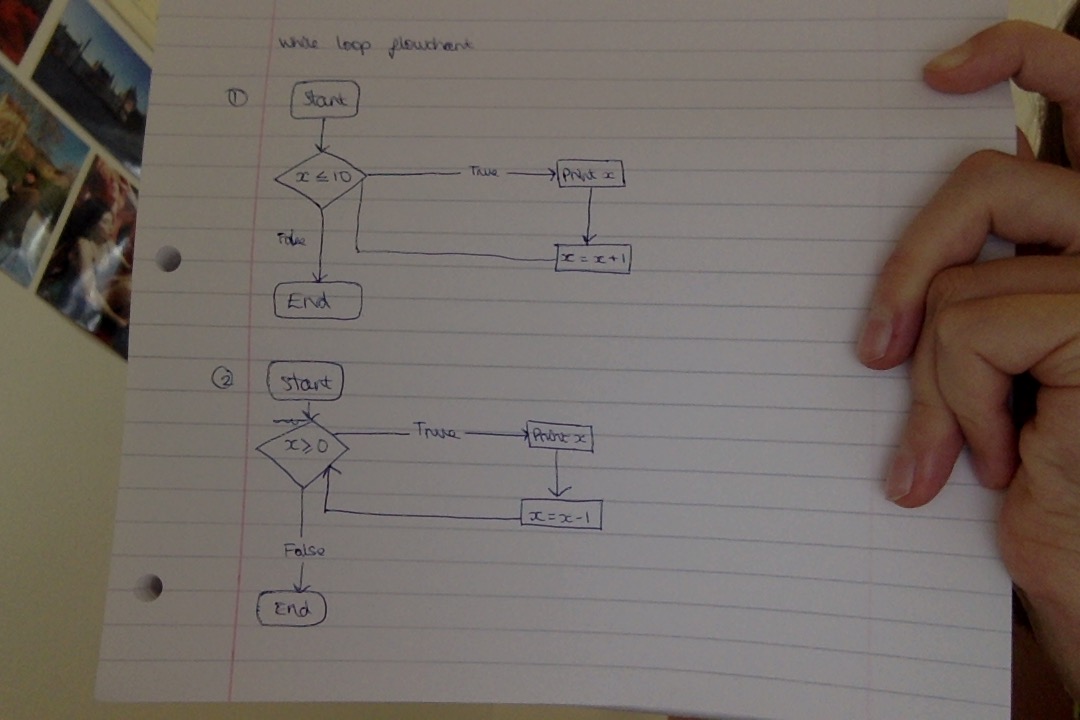 while loop flowchart
①
Start
x ≤ 10
True
Print x
False
x = x + 1
End
②
Start
x ≥ 0
True
Print x
x = x - 1
False
End